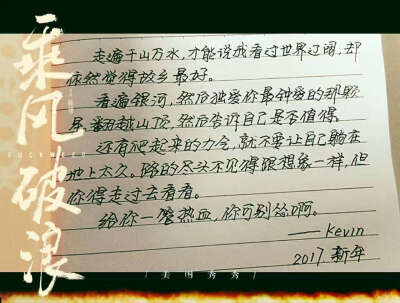 乘风破浪
走遍千山万水,才能说我看过世界辽阔,却
依然觉得故乡最好。
看遍银河,然后独爱你最钟爱的那颗
星,翻越山顶,然后告诉自己是否值得。
还有爬起来的力气,就不要让自己躺在
地上太久。路的尽头不见得跟想象一样,但
你得走过去看看。
给你一管热血,你可别怂啊。
——Kevin
2017 新年
美图秀秀